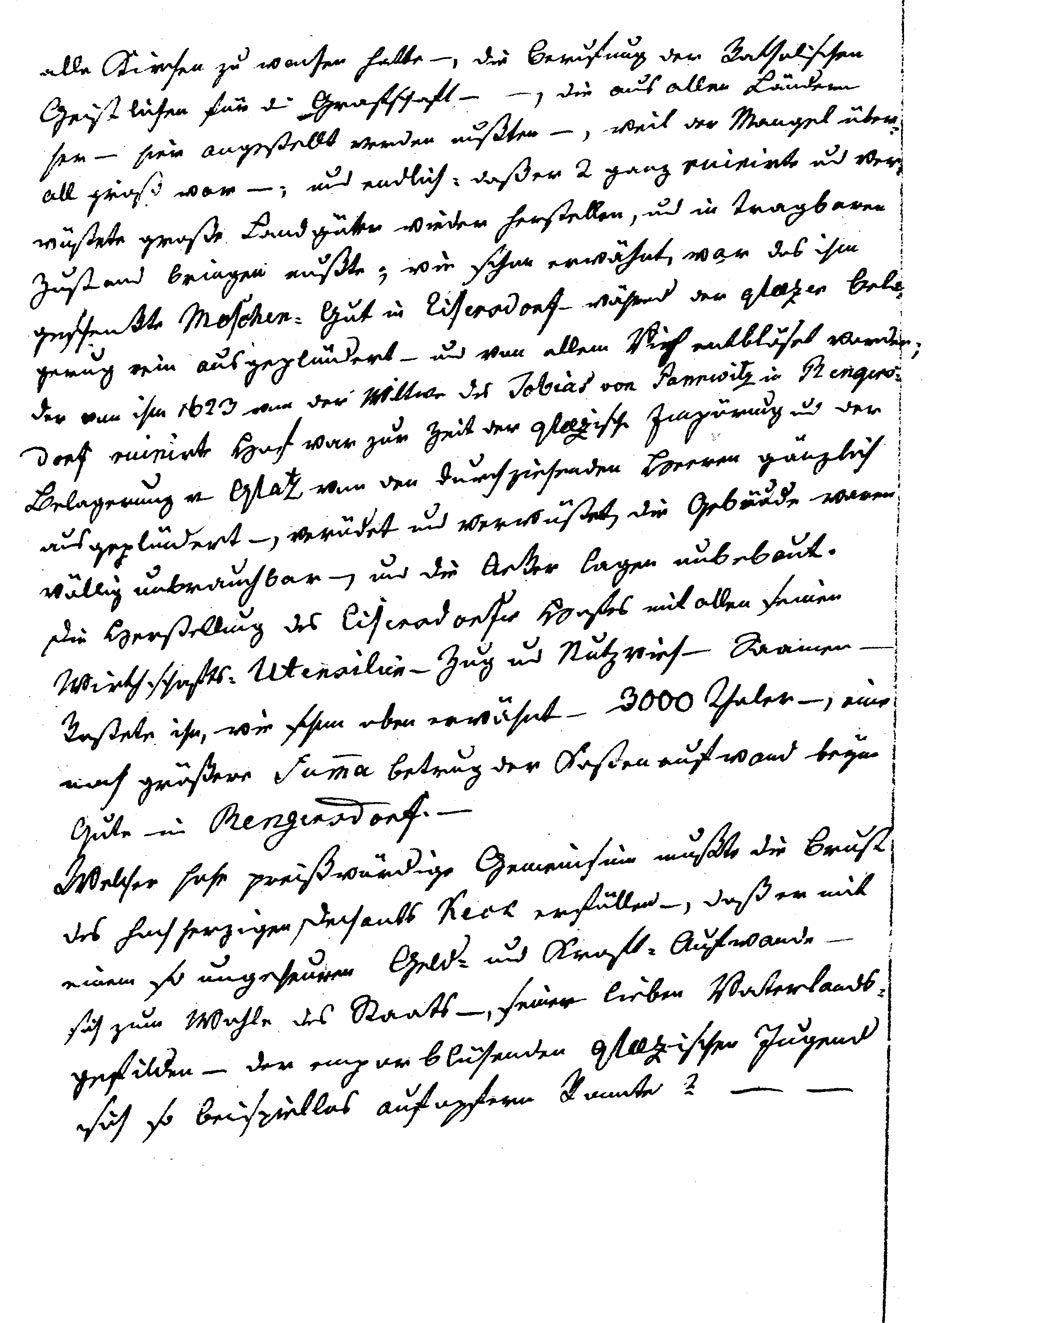 alle Kirchen zu weihen hatte —, die Berufung der Katholischen
Geistlichen für di Grafschaft — —, die aus allen Ländern
her — hier angestellt werden mußten —, weil der Mangel über¬
all groß war —; und endlich: daß er 2 ganz ruinirte ud ver¬
wüstete große Landgüter wieder herstellen, ud in tragbaren
Zustand bringen mußte; wie schon erwähnt, war das ihm
geschenkte Moschen: Gut in Eisersdorf während der glatzer Bela¬
gerung rein ausgeplündert — und von allem Vieh entblöset worden;
der von ihm 1623 von der Wittwe des Tobias von Pannwitz in Rengers¬
dorf ruinirte Hof war zur Zeit der glatzisch Empörung ud der
Belagerung v Glatz von den durchziehenden Heeren gänzlich
ausgeplündert —, verödet und verwüstet, die Gebäude waren
völlig unbrauchbar —, und die Aeker lagen unbebaut.
Die Herstellung des Eisersdorfer Hofes mit allen seinen
Wirthschafts: Utensilien — Zug und Nutzvieh — Saamen —
kostete ihn, wie schon oben erwähnt — 3000 Thaler —, eine
noch größere Summa betrug der Kostenaufwand beym
Gute — in Rengersdorf. —
Welcher hohe preißwürdige Gemeinsinn mußte die Brust
des hochherzigen Dechants Keck erfüllen —, daß er mit
einem so ungeheuren Geld: und Kraft: Aufwande —
sich zum Wohle des Staats —, seiner lieben Vaterlands¬
gefilden — der empor blühenden glatzischen Jugend
sich so beispiellos aufopfern konnte? — —